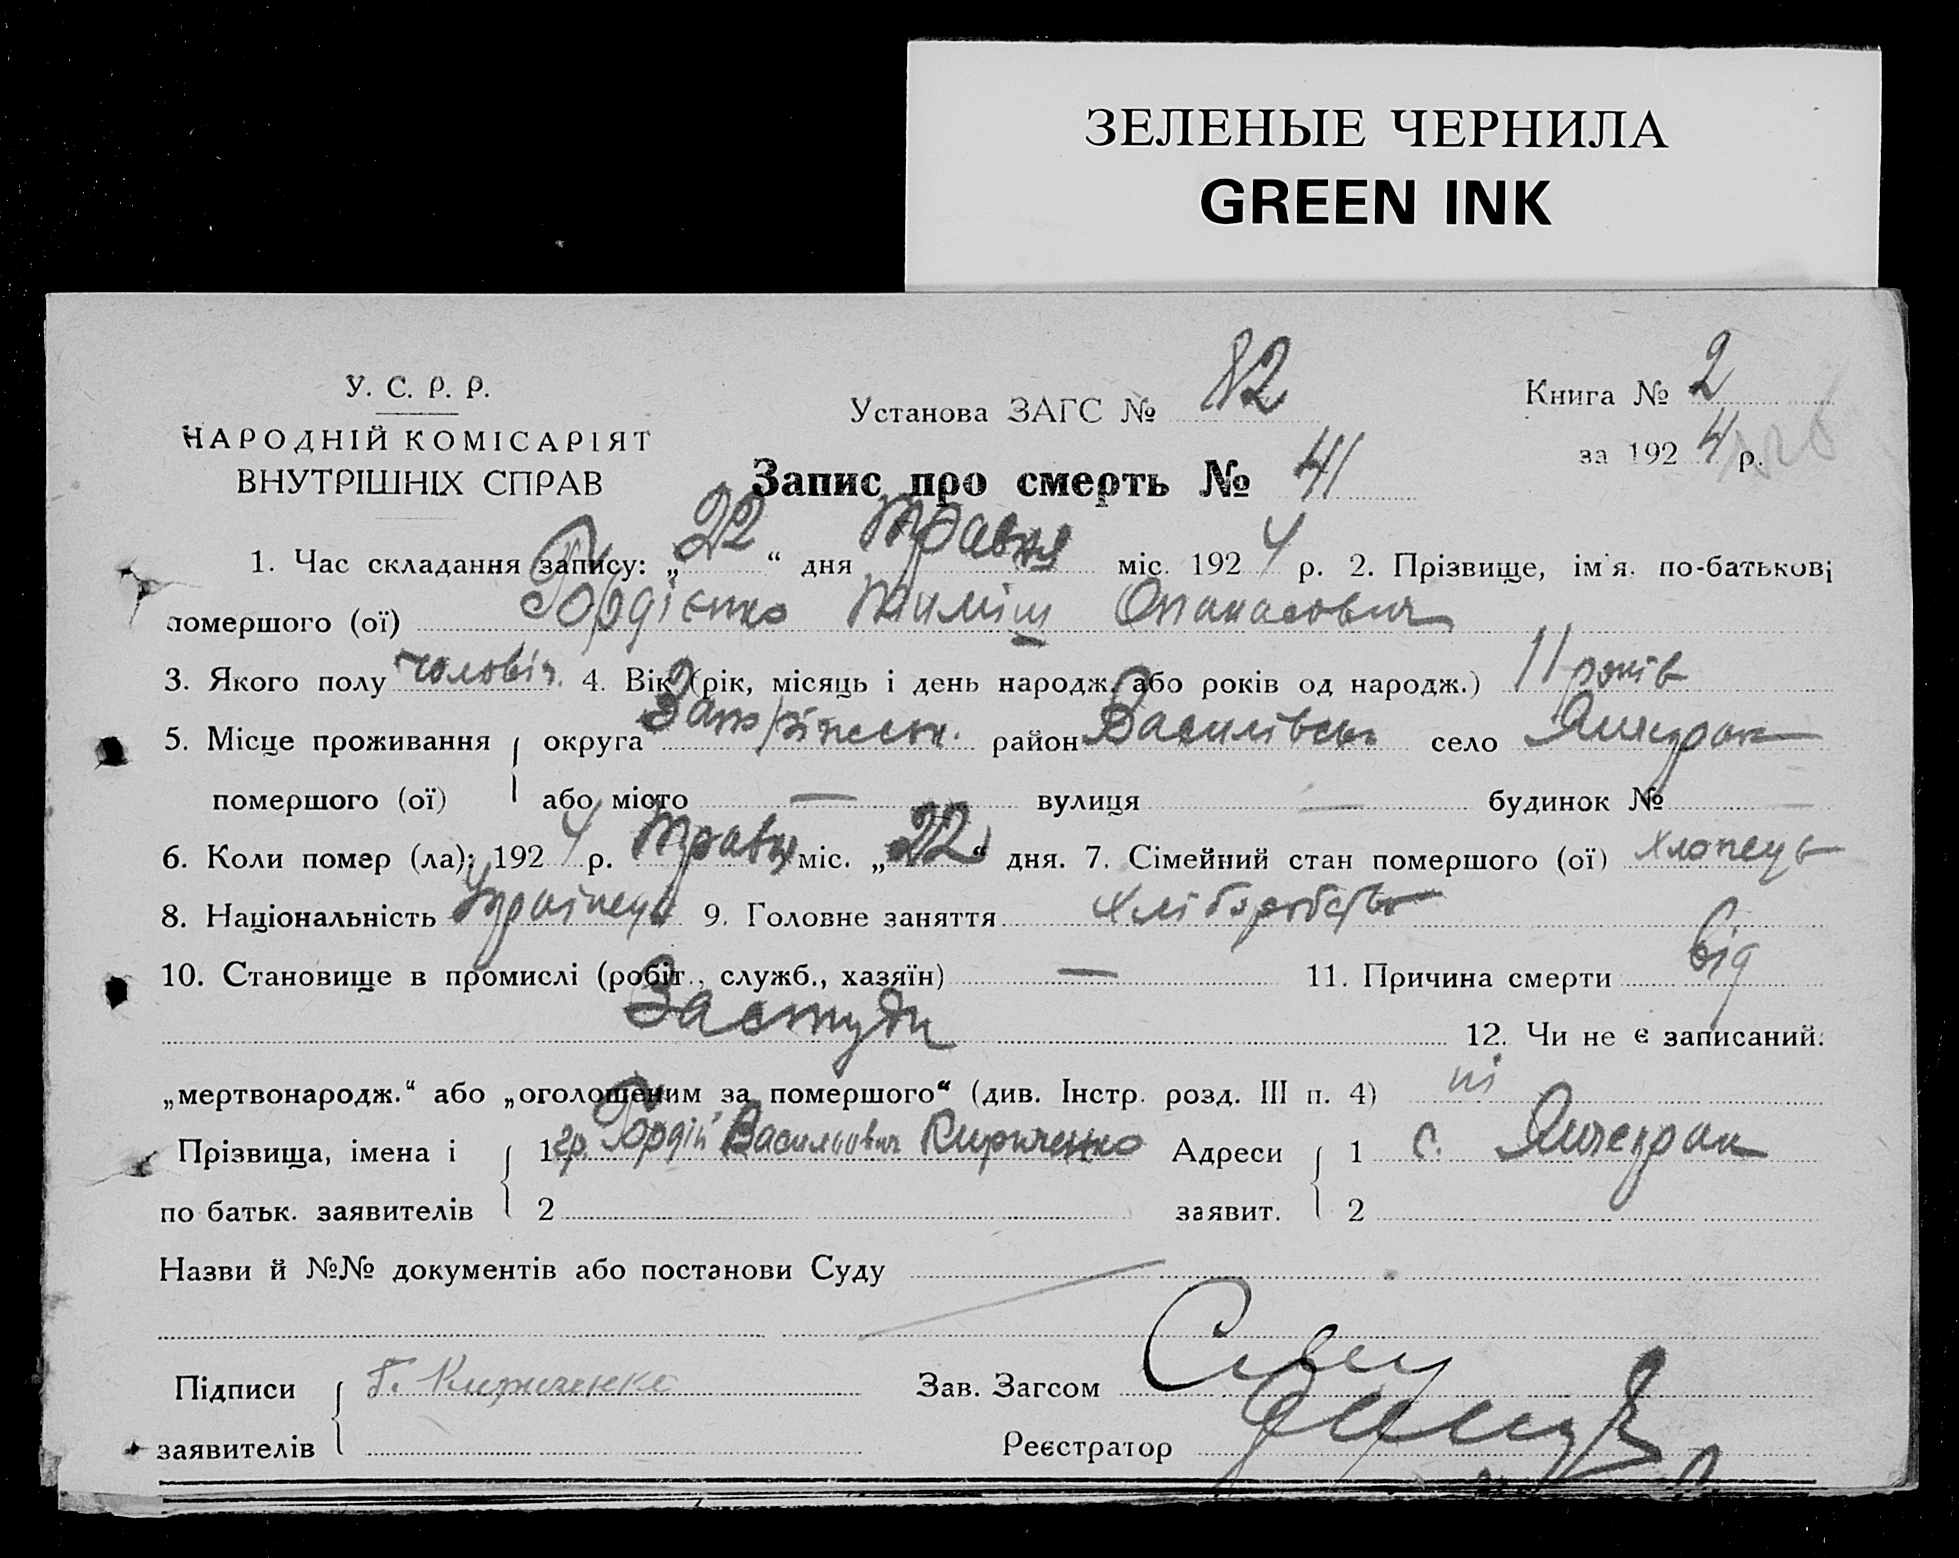 ЗЕЛЕНЫЕ ЧЕРНИЛА
GREEN INK
У. С. Р. Р.
НАРОДНІЙ КОМІСАРІЯТ
ВНУТРІШНІХ СПРАВ
Установа ЗАГС № 82
Книга № 2
за 1924 р.
Запис про смерть № 41
1. Час складання запису: „22“ дня травня міс. 1924 р. 2. Прізвище, ім'я, по-батькові
помершого (ої) Гордієнко Тиміш Опанасович
3. Якого полу чоловіч. 4. Вік (рік, місяць і день народж. або років од народж.) 11 років
5. Місце проживання округа Запоріжськ. район Василівськ село Янчекрак
помершого (ої) або місто — вулиця — будинок № —
6. Коли помер (ла): 1924 р. травня міс. „22“ дня. 7. Сімейний стан помершого (ої) хлопець
8. Національність Українець 9. Головне заняття хліборобство
10. Становище в промислі (робіт., служб., хазяїн) — 11. Причина смерти від
Застуди 12. Чи не є записаний:
„мертвонародж.“ або „оголошеним за помершого“ (див. Інстр. розд. III п. 4) ні
Прізвища, імена і 1 гр. Гордій Васильович Кириченко Адреси 1 с. Янчекрак
по батьк. заявителів 2 заявит. 2
Назви й №№ документів або постанови Суду
Підписи Г. Кириченко Зав. Загсом
заявителів Реєстратор